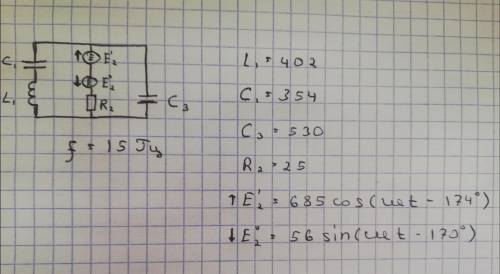 C₁
L₁
E₂'
E₂"
R₂
C₃
f = 15 Гц
L₁ = 402
C₁ = 354
C₃ = 530
R₂ = 25
↑ E₂' = 685 cos(ωt - 174°)
↓ E₂" = 56 sin(ωt - 170°)